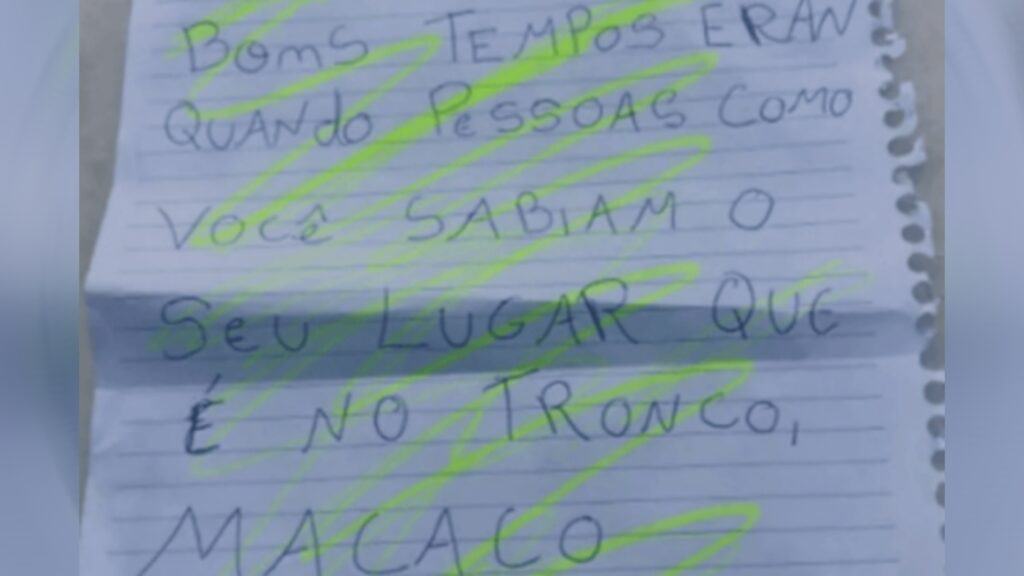 BOmS TEMPOS ERAN
QUANdO PeSSOAS COMO
VOCÊ SABIAM O
SeU LUGAR QUE
É NO TRONCO,
MACACO